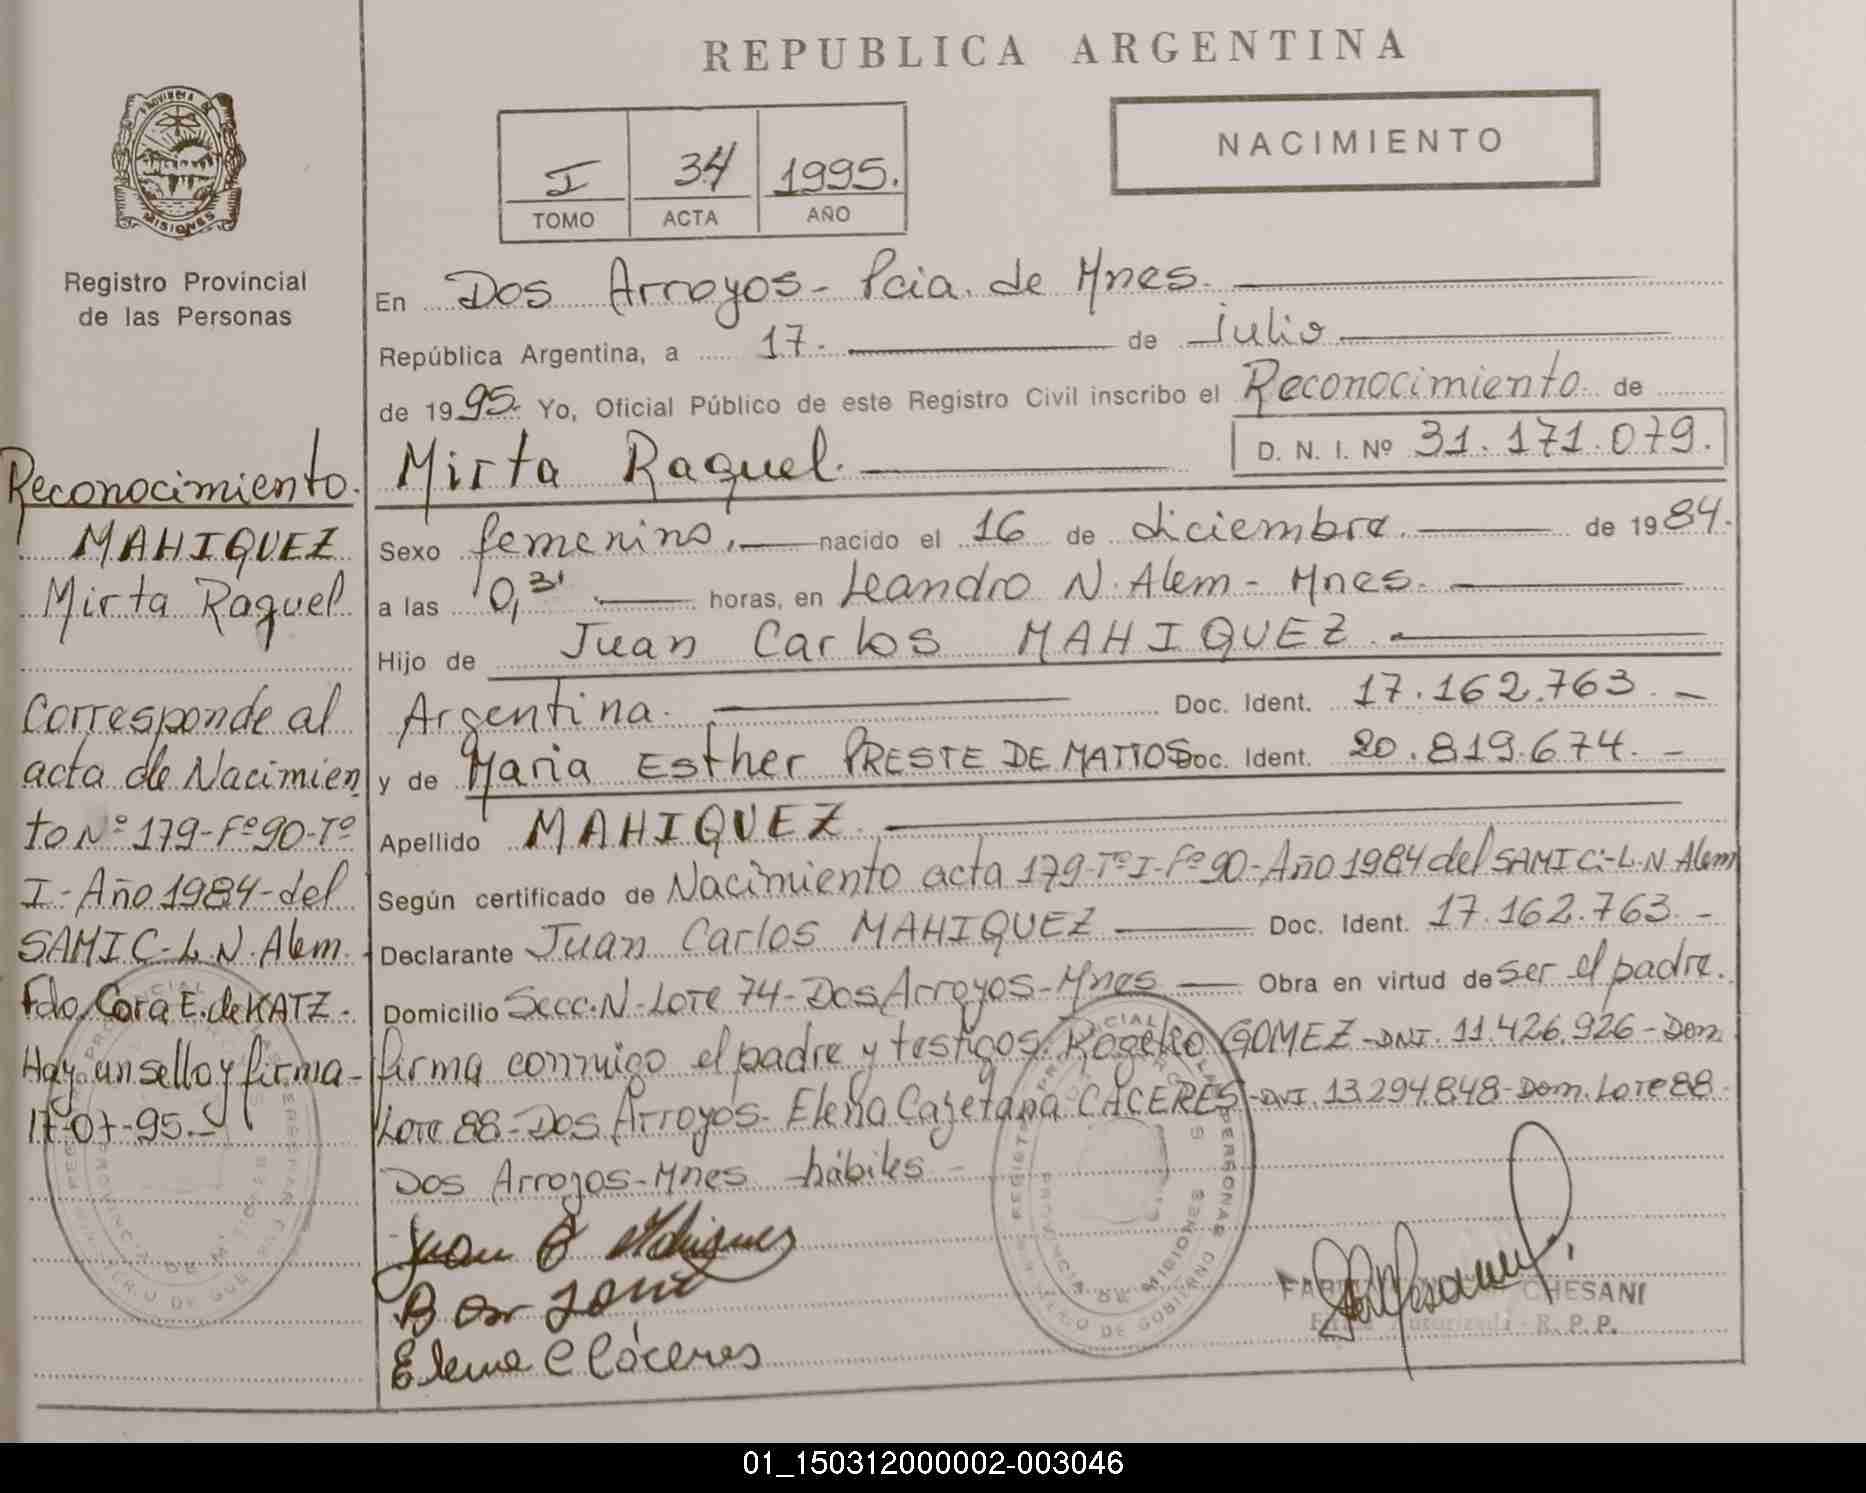 REPUBLICA ARGENTINA
PROVINCIA DE
MISIONES
Registro Provincial
de las Personas
I 34 1995.
TOMO ACTA AÑO
NACIMIENTO
En Dos Arroyos - Pcia. de Mnes.
República Argentina, a 17. de julio
de 1995. Yo, Oficial Público de este Registro Civil inscribo el Reconocimiento de
Mirta Raquel. D. N. I. Nº 31.171.079.
Sexo femenino, nacido el 16 de diciembre. de 1984.
a las 0,3' horas, en Leandro N. Alem - Mnes.
Hijo de Juan Carlos MAHIQUEZ.
Argentina. Doc. Ident. 17.162.763. -
y de Maria Esther PRESTE DE MATTOS Doc. Ident. 20.819.674. -
Apellido MAHIQUEZ.
Según certificado de Nacimiento acta 179-Tº I-Fº 90-Año 1984 del SAMIC.-L.N. Alem
Declarante Juan Carlos MAHIQUEZ Doc. Ident. 17.162.763. -
Domicilio Secc.N-Lote 74-Dos Arroyos-Mnes Obra en virtud de ser el padre.
firma conmigo el padre y testigos. Rogelio GOMEZ-DNI. 11.426.926-Dom.
Lote 88-Dos Arroyos. Elena Cayetana CACERES-DNI. 13.294.848-Dom. Lote 88
Dos Arroyos-Mnes hábiles
Elena C Cáceres
CHESANI
Autorizada - R.P.P.
Reconocimiento.
MAHIQUEZ
Mirta Raquel
Corresponde al
acta de Nacimien
to Nº 179-Fº 90-Tº
I-Año 1984-del
SAMIC-L.N. Alem.
Fdo. Cora E. de KATZ.
Hay un sello y firma-
17-07-95.-
01_150312000002-003046